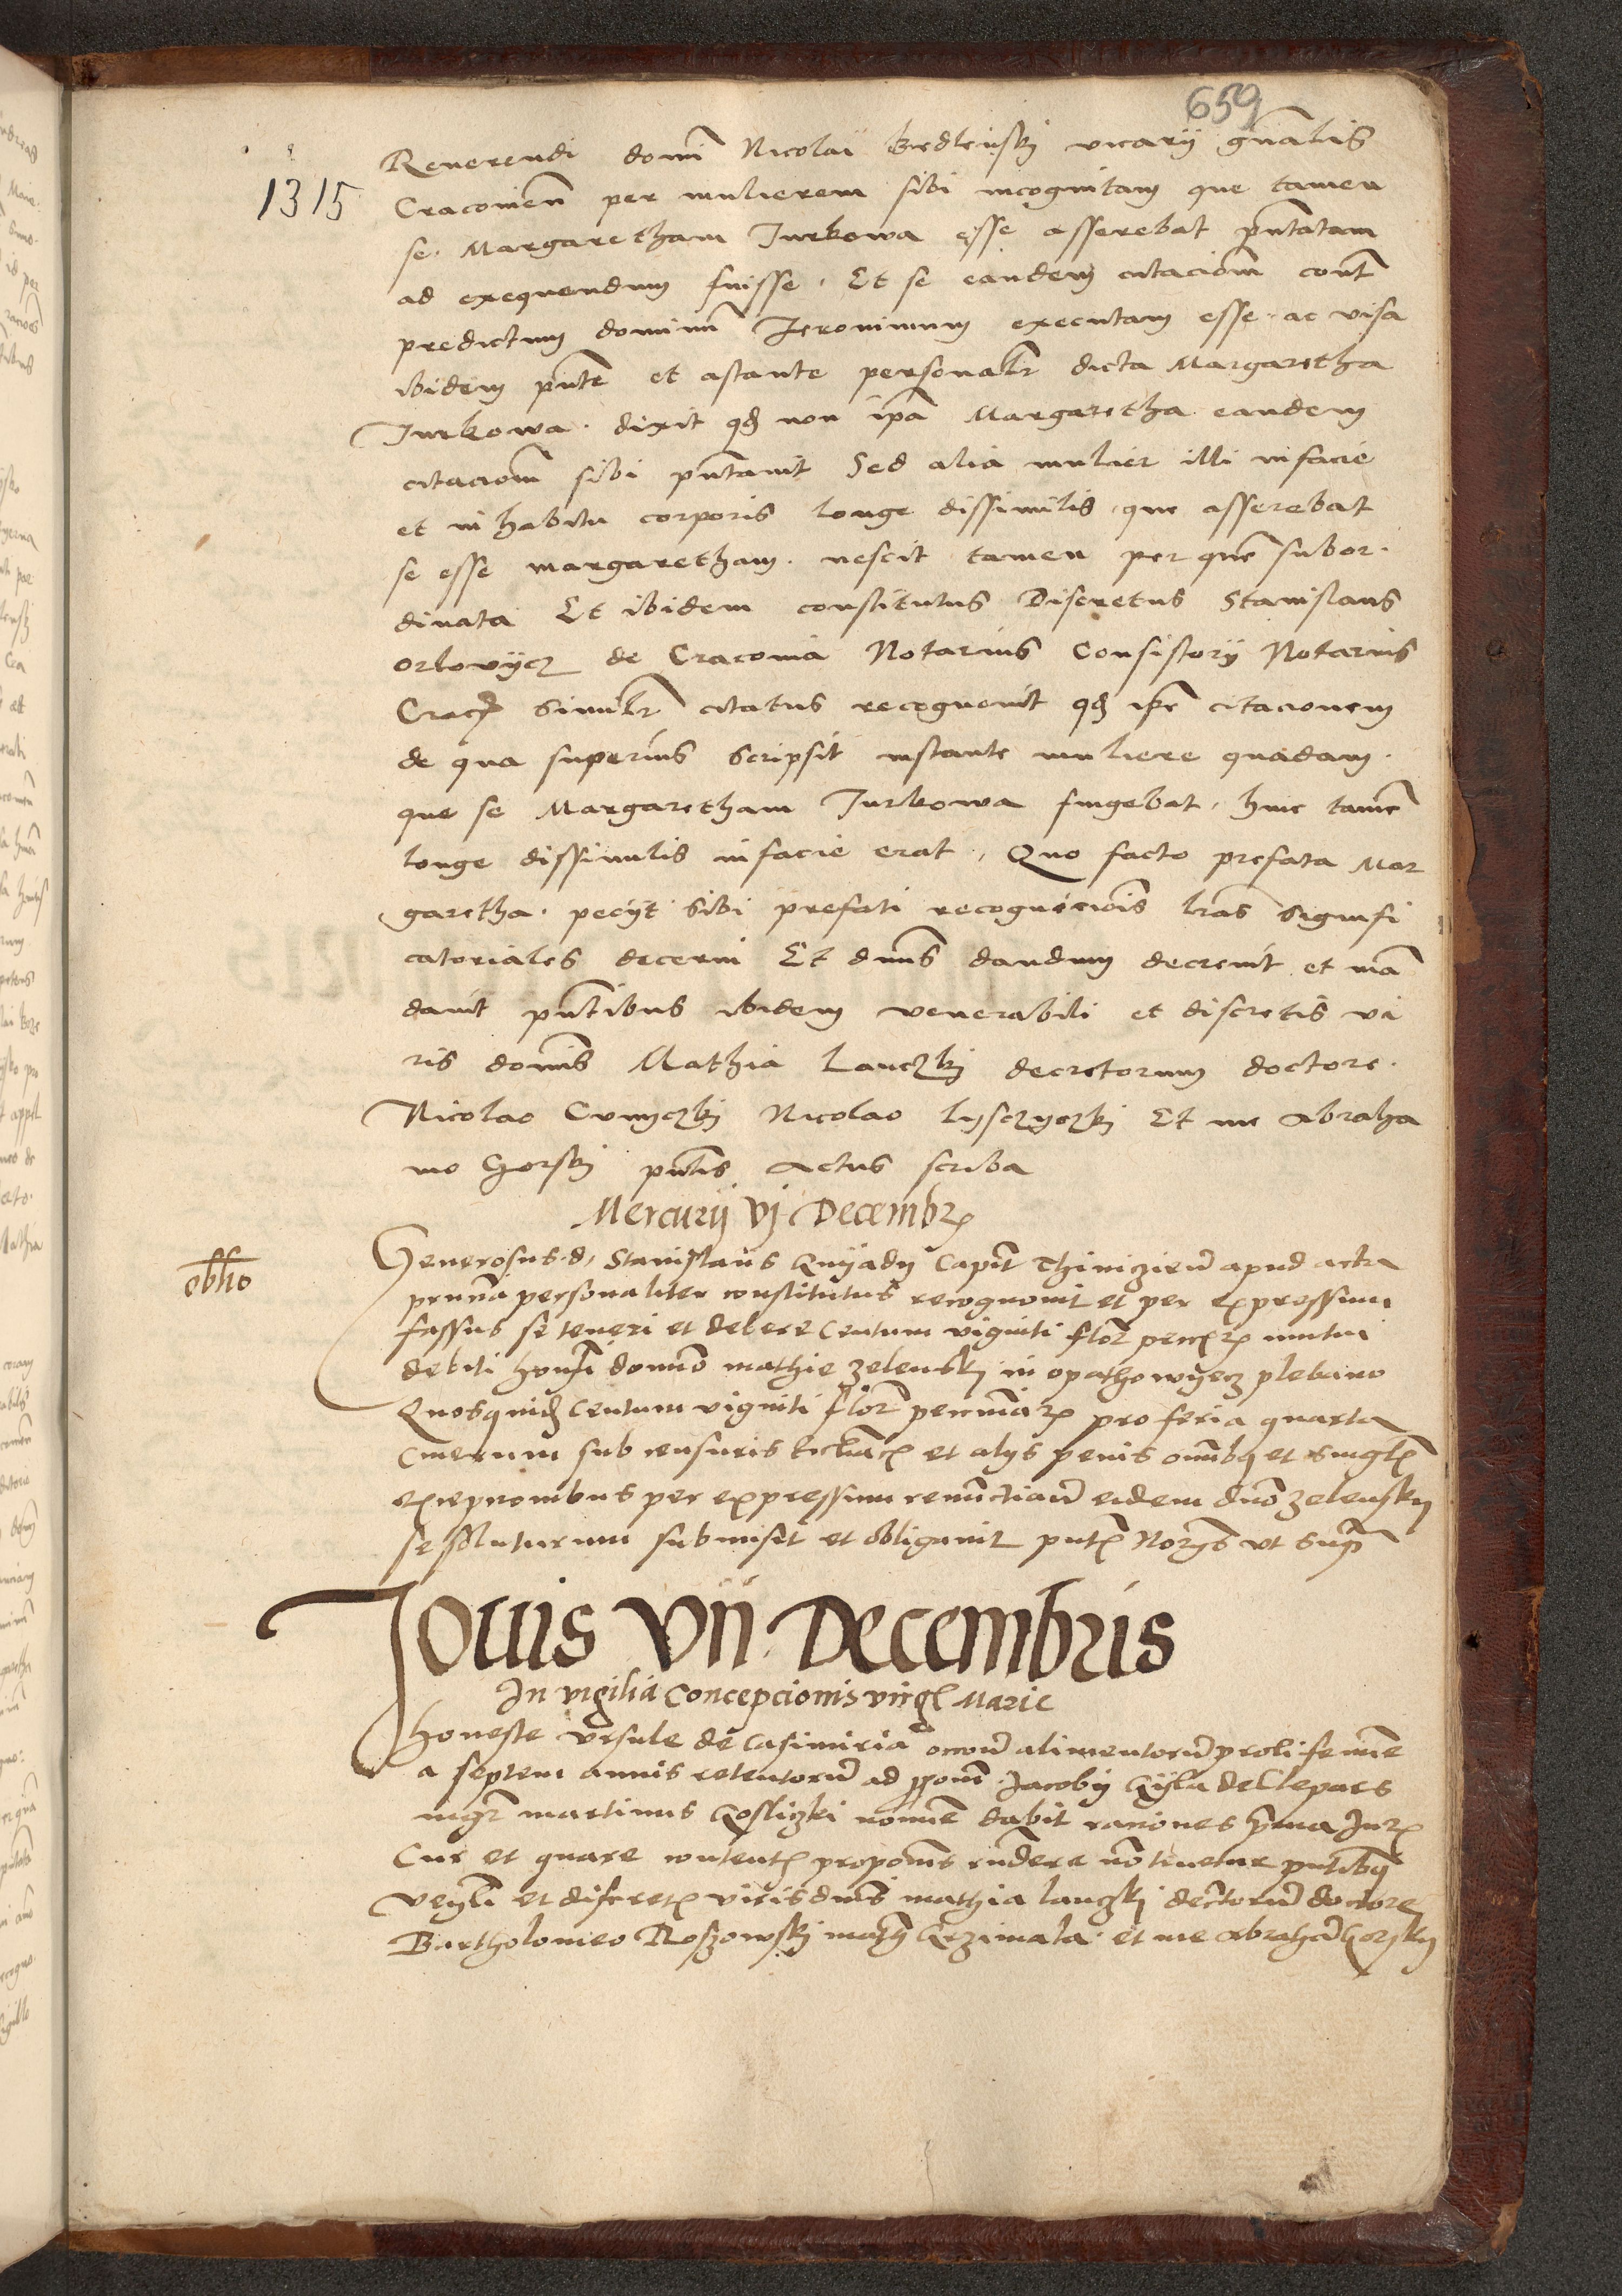 659
Reuerendi domi Nicolai Bedlensky vicarij gnalis
1315
Cracouien per mulierem sibi incognitam que tamen
se Margaretham Jurkowa esse asserebat pntatam
ad exequendum fuisse. Et se eandem citaciom cont
predictum dominu Jeronimum executam esse. ac visa
ibidem pnte et astante personalr dicta Margaretha
Jurkowa. dixit qd non ipa Margaretha eandem
citaciom sibi pntauit Sed alia mulier illi in facie
et in habitu corporis longe dissimilis que asserebat
se esse margaretham. nescit tamen per que subor
dinata Et ibidem constitutus Discretus Stanislaus
orlowycz de Cracouia Notarius Consistorij Notarius
Crac similr citatus recognouit qd ipe citacionem
de qua superius scripsit instante muliere quadam.
que se Margaretham Jurkowa fingebat, huic tame
longe dissimilis in facie erat, Quo facto prefata Mar
garetha. pecijt sibi prefati recognicois lras signifi
catoriales decerni Et dnus dandum decreuit et ma
dauit pntibus ibidem venerabili et discretis vi
ris domis Mathia Lanczky decretorum doctore.
Nicolao Nicolao Et me Abraha
mo Gorsky pntis Actus scriba
Mercurij vj Decembr
obllo
Generosus d. Stanislaus Gnyady Capit apud acta
pntia personaliter constitutus recognouit et per expressum
fassus se teneri et debere Centum viginti flor mutui
debiti domino mathie zelensky in opathowyecz plebano
Quosquid Centum viginti flor pro feria quarta
Cinerum sub censuris et alijs penis omibq et
per expressum eidem dno zelensky
se soluturum submisit et obligauit pntb vt supra
Jouis vii Decembris
In vigilia Concepcionis virgi Marie
Honeste vrsule de Casimiria alimentoru proli femine
a septem annis retentoru ad Jacobi de Clepars
mgr martinus noie dabit raciones
Cur et quare content propois rndere no tenetur pntibq
et discret viris dnis mathia lanczky doctore
Bartholomeo Roszowsky math Grzimala et me Abraha Gorsky